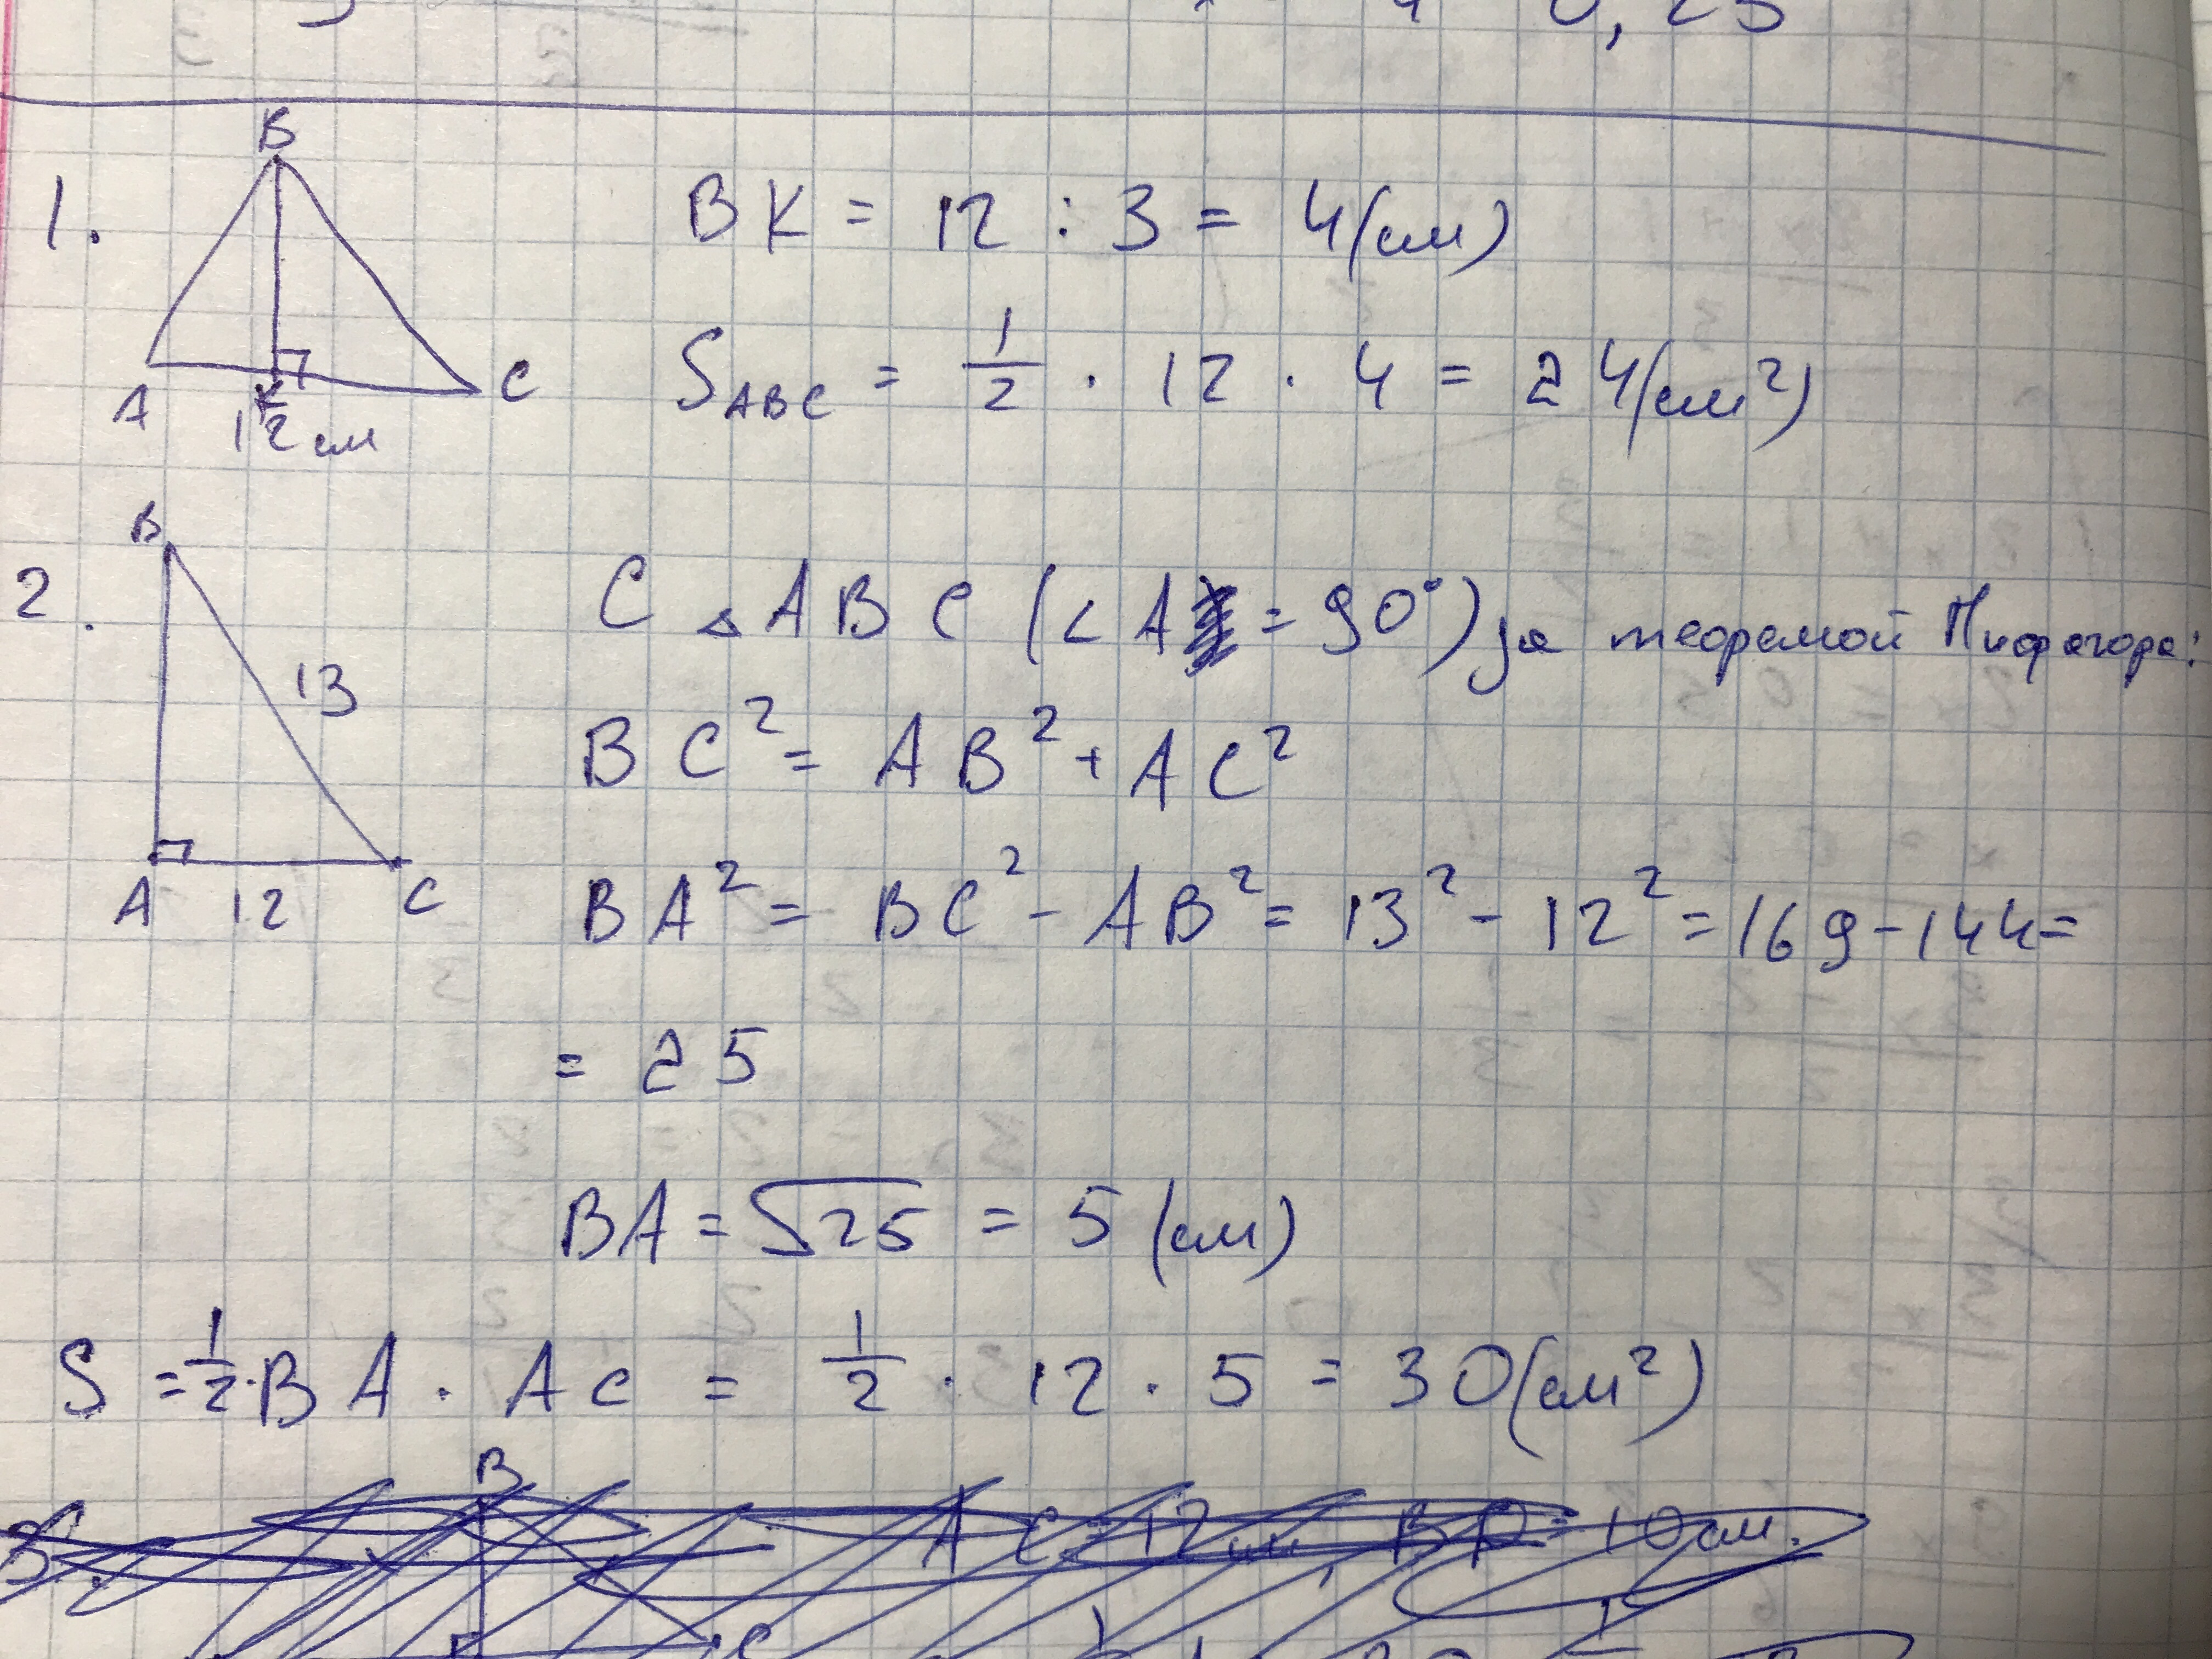 0,25
1.
B
A
K
C
12 см
BK = 12 : 3 = 4(см)
S_ABC = 1/2 · 12 · 4 = 24(см²)
2.
B
13
A
12
C
С △ABC (<A = 90°) за теоремой Пифагора:
BC² = AB² + AC²
BA² = BC² - AB² = 13² - 12² = 169 - 144 =
= 25
BA = √25 = 5 (см)
S = 1/2 · BA · AC = 1/2 · 12 · 5 = 30(см²)
3.
B
C
AC = 12 см BD = 10 см.